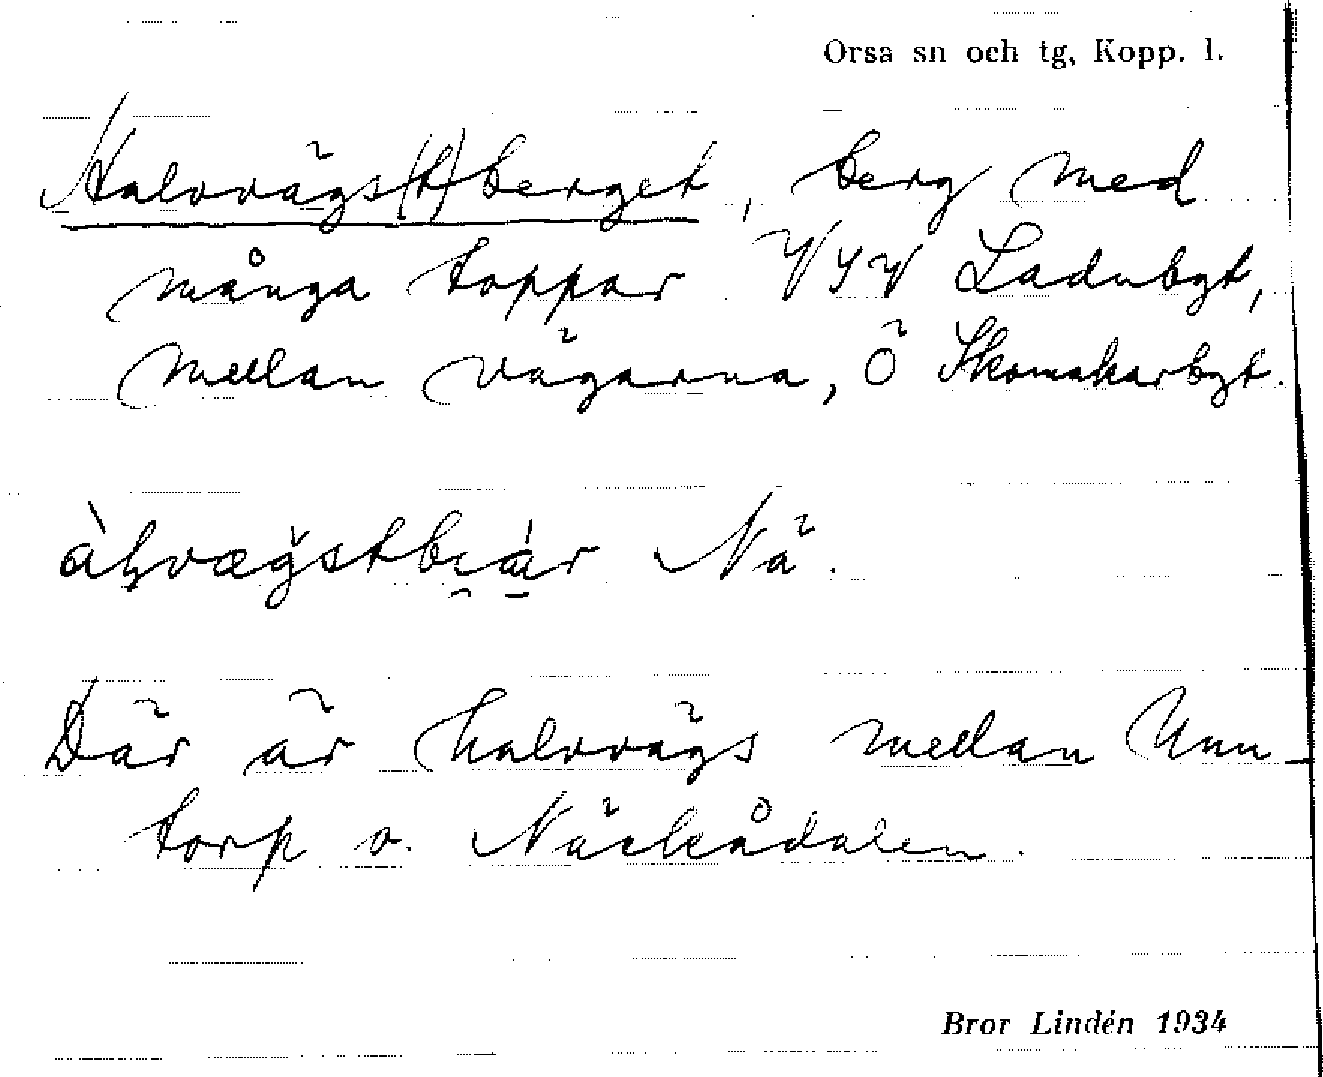 Orsa sn och tg, Kopp. l.
Halvvägs(t)berget, berg med
många toppar VSV Ladubgt,
mellan vägarna, Ö Skomakarbgt.
Nä.
Där är halvvägs mellan Unn-
torp o. Näckådalen.
Bror Lindén 1934